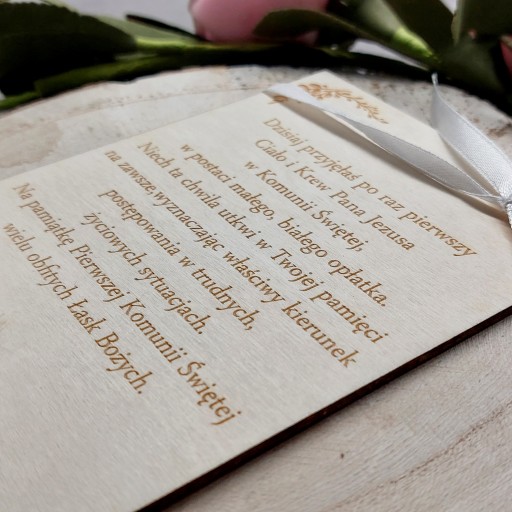 Dzisiaj przyjęłaś po raz pierwszy
Ciało i Krew Pana Jezusa
w Komunii Świętej,
w postaci małego, białego opłatka.
Niech ta chwila utkwi w Twojej pamięci
na zawsze wyznaczając właściwy kierunek
postępowania w trudnych,
życiowych sytuacjach.
Na pamiątkę Pierwszej Komunii Świętej
wielu obfitych Łask Bożych.